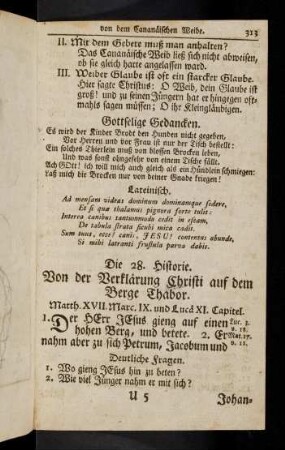 von dem Cananäischen Weibe. 313
II. Mit dem Gebete muß man anhalten?
Das Cananäische Weib ließ sich nicht abweisen,
ob sie gleich harte angelassen ward.
III. Weiber Glaube ist oft ein starcker Glaube.
Hier sagte Christus: O Weib, dein Glaube ist
groß! und zu seinen Jüngern hat er hingegen oft-
mahls sagen müssen; O ihr Kleingläubigen.
Gottselige Gedancken.
Es wird der Kinder Brodt den Hunden nicht gegeben,
Vor Herren und vor Frau ist nur der Tisch bestellt:
Ein solches Thierlein muß von blossen Brocken leben,
Und was sonst ohngefehr von einem Tische fällt.
Ach GOtt! ich will mich auch gleich als ein Hündlein schmiegen:
Laß mich die Brocken nur von deiner Gnade kriegen!
Lateinisch.
Ad mensam videas dominum dominamque sedere,
Et si quæ thalamus pignora ferre tulit:
Interea canibus tantummodo cedit in escam,
De tabula strata sicubi mica cadit.
Sum tuus, ecce! canis, JESU! contentus abunde,
Si mihi latranti frustula parva dabis.
Die 28. Historie.
Von der Verklärung Christi auf dem
Berge Thabor.
Matth. XVII. Marc. IX. und Lucä XI. Capitel.
1. Der HErr JEsus gieng auf einen Luc. 9.
hohen Berg, und betete. 2. Er Mat. 17.
nahm aber zu sich Petrum, Jacobum und
Deutliche Fragen.
1. Wo gieng JEsus hin zu beten?
2. Wie viel Jünger nahm er mit sich?
U 5 Johan-